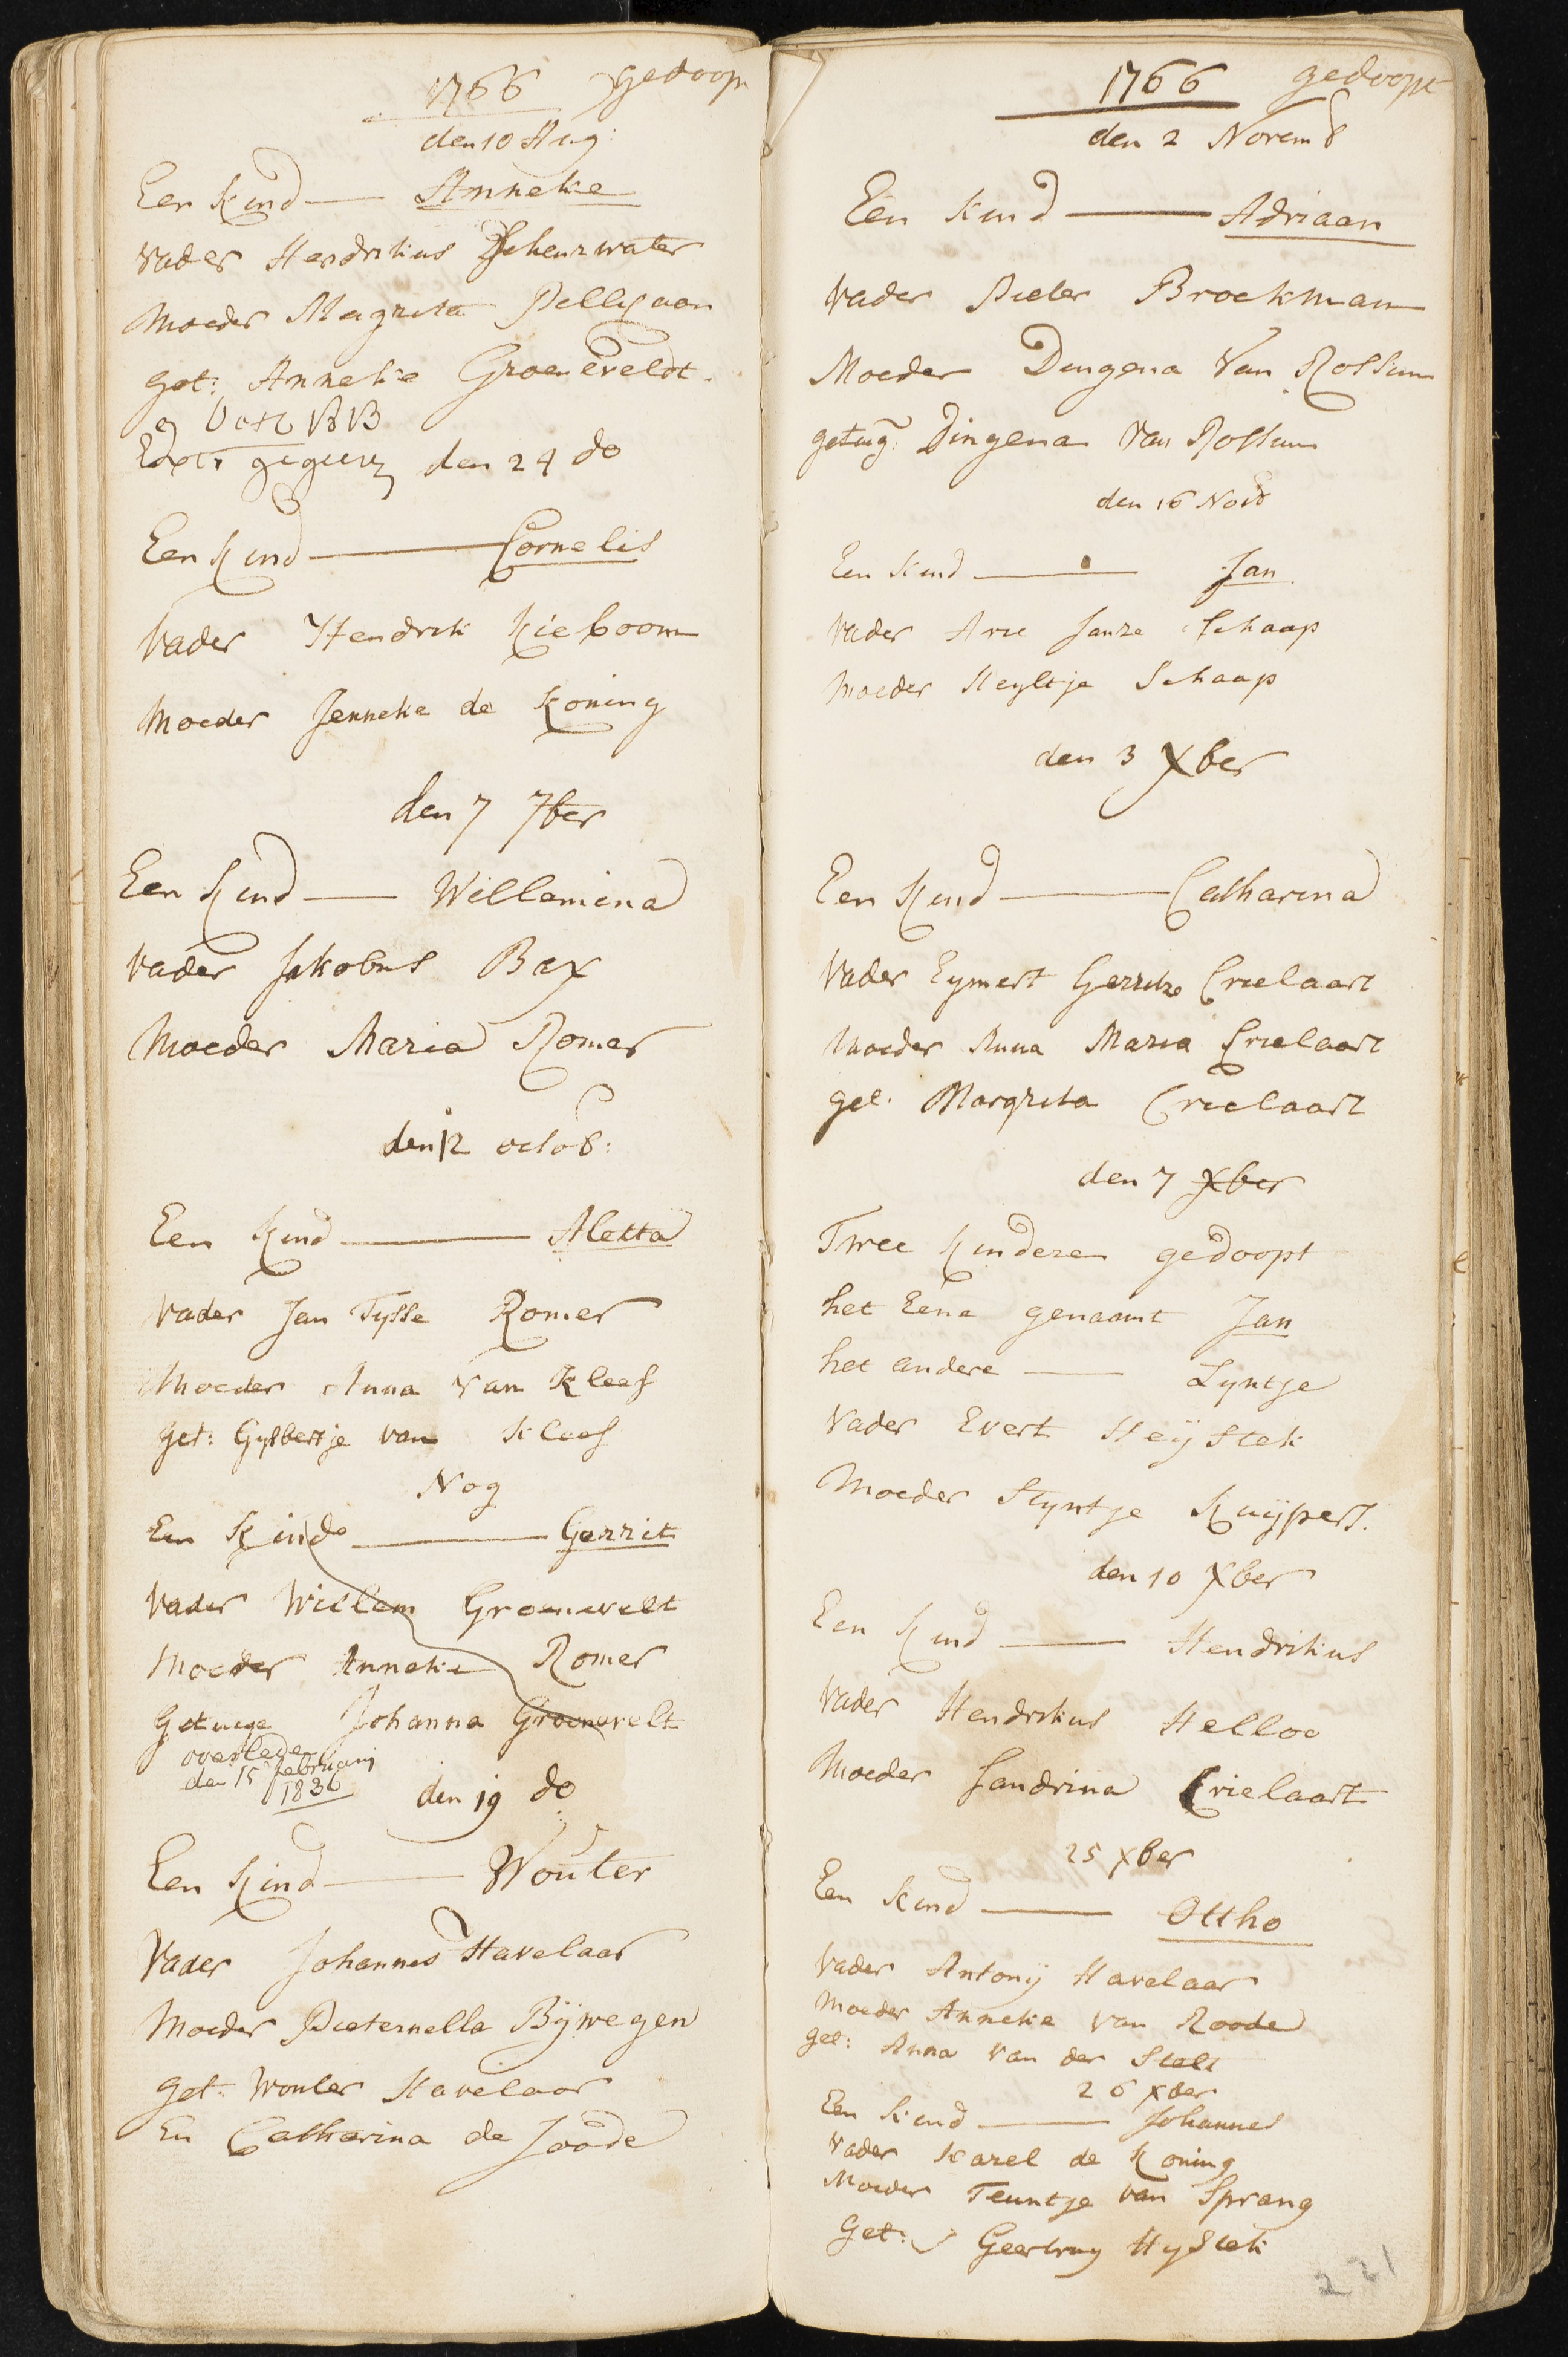 1766 gedoop
den 10 Aug:
Een kind — Anneke
Vader Hendrikus Scheurwater
Moeder Magrita Pellegaan
get: Anneke Groeneveldt.
den 24 do
Een kind — Cornelis
Vader Hendrik Kieboom
Moeder Jenneke de Koning
den 7 7ber
Een kind — Willemina
Vader Jakobus Bax
Moeder Maria Romer
den 12 octob:
Een kind — Aletta
Vader Jan Tysse Romer
Moeder Anna Van Kleef
get: Gysbertje van Kleef
Nog
Een kind — Gerrit
Vader Willem Groenevelt
Moeder Anneke Romer
Getuige Johanna Groenevelt
overleden
den 15 februarij
1836
den 19 do
Een kind — Wouter
Vader Johannes Havelaar
Moeder Pieternella Bijwegen
get: Wouter Havelaar
En Catharina de Joode
1766 gedoopt
den 2 Novemb
Een kind — Adriaan
Vader Pieter Brockman
Moeder Dingena Van Rossum
getuig: Dingena Van Rossum
den 16 Novb
Een kind — Jan
Vader Arie Janze Schaap
Moeder Heyltje Schaap
den 3 Xber
Een kind — Catharina
Vader Eymert Gerritze Crielaart
Moeder Anna Maria Crielaart
get. Margrita Crielaart
den 7 Xber
Twee kinderen gedoopt
het Eene genaamt Jan
het andere — Lyntje
Vader Evert Heystek
Moeder Styntje Kuijpers.
den 10 Xber
Een kind — Hendrikus
Vader Hendrikus Helloo
Moeder Sandrina Crielaart
25 Xber
Een kind — Ottho
Vader Antonij Havelaar
Moeder Anneke van Roode
get: Anna van der Stelt
26 Xber
Een kind — Johannes
Vader Karel de Koning
Moeder Teuntje van Sprang
Get: Geertruy Hystek
221